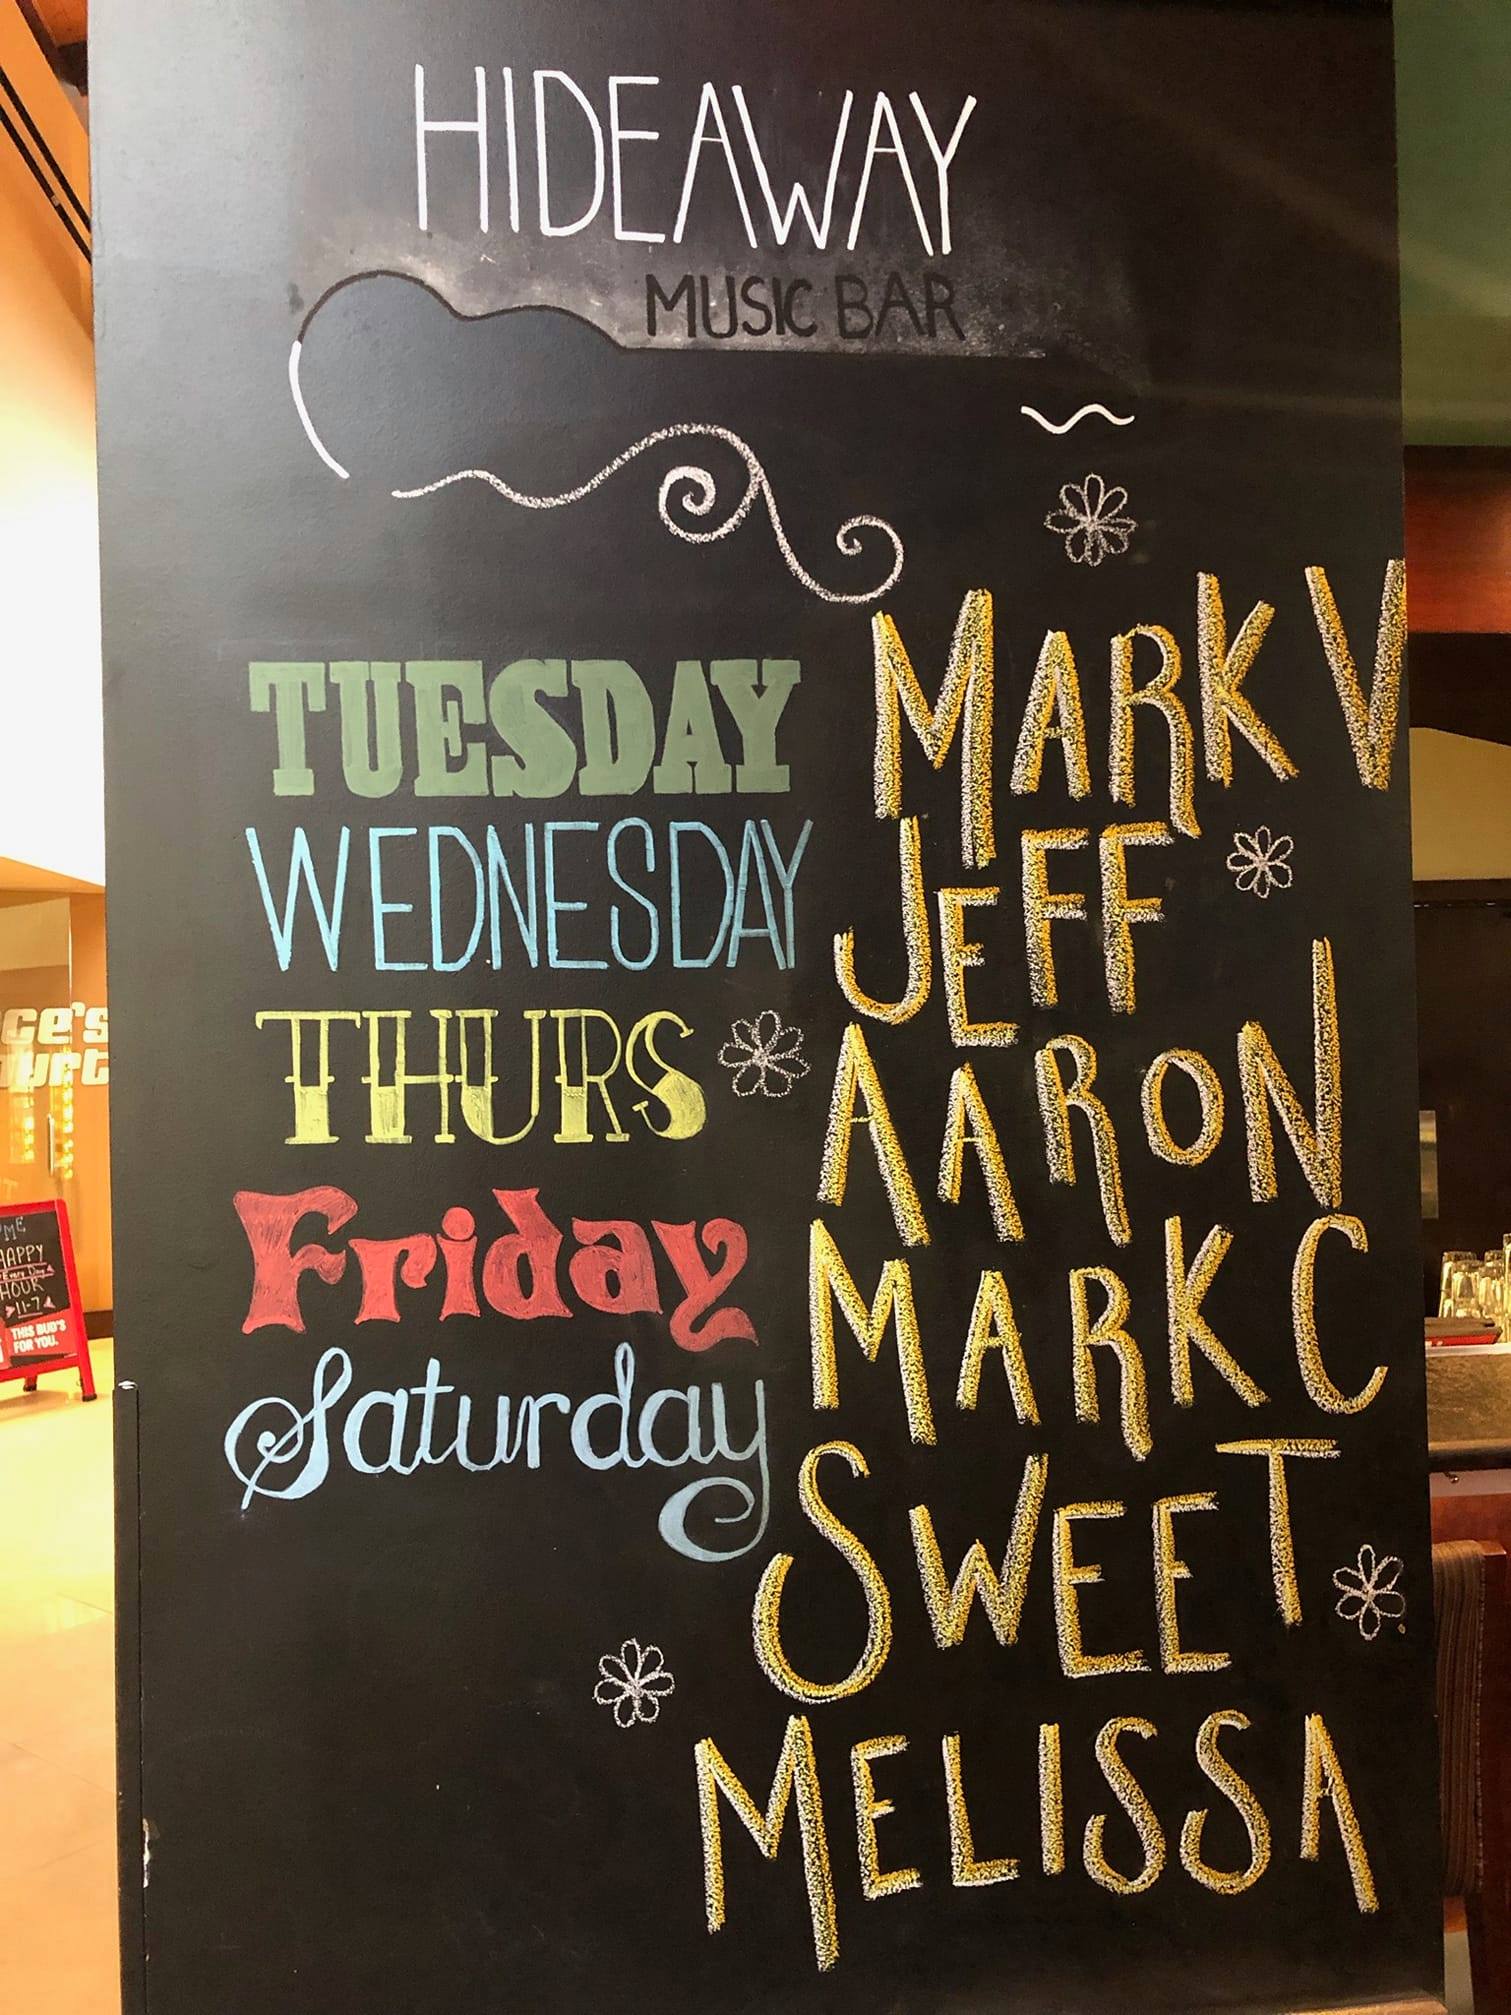 HIDEAWAY
MUSIC BAR
TUESDAY MARK V
WEDNESDAY JEFF
THURS AARON
Friday MARK C
Saturday SWEET
MELISSA
HAPPY
Every Day
HOUR
11-7
THIS BUD'S
FOR YOU.